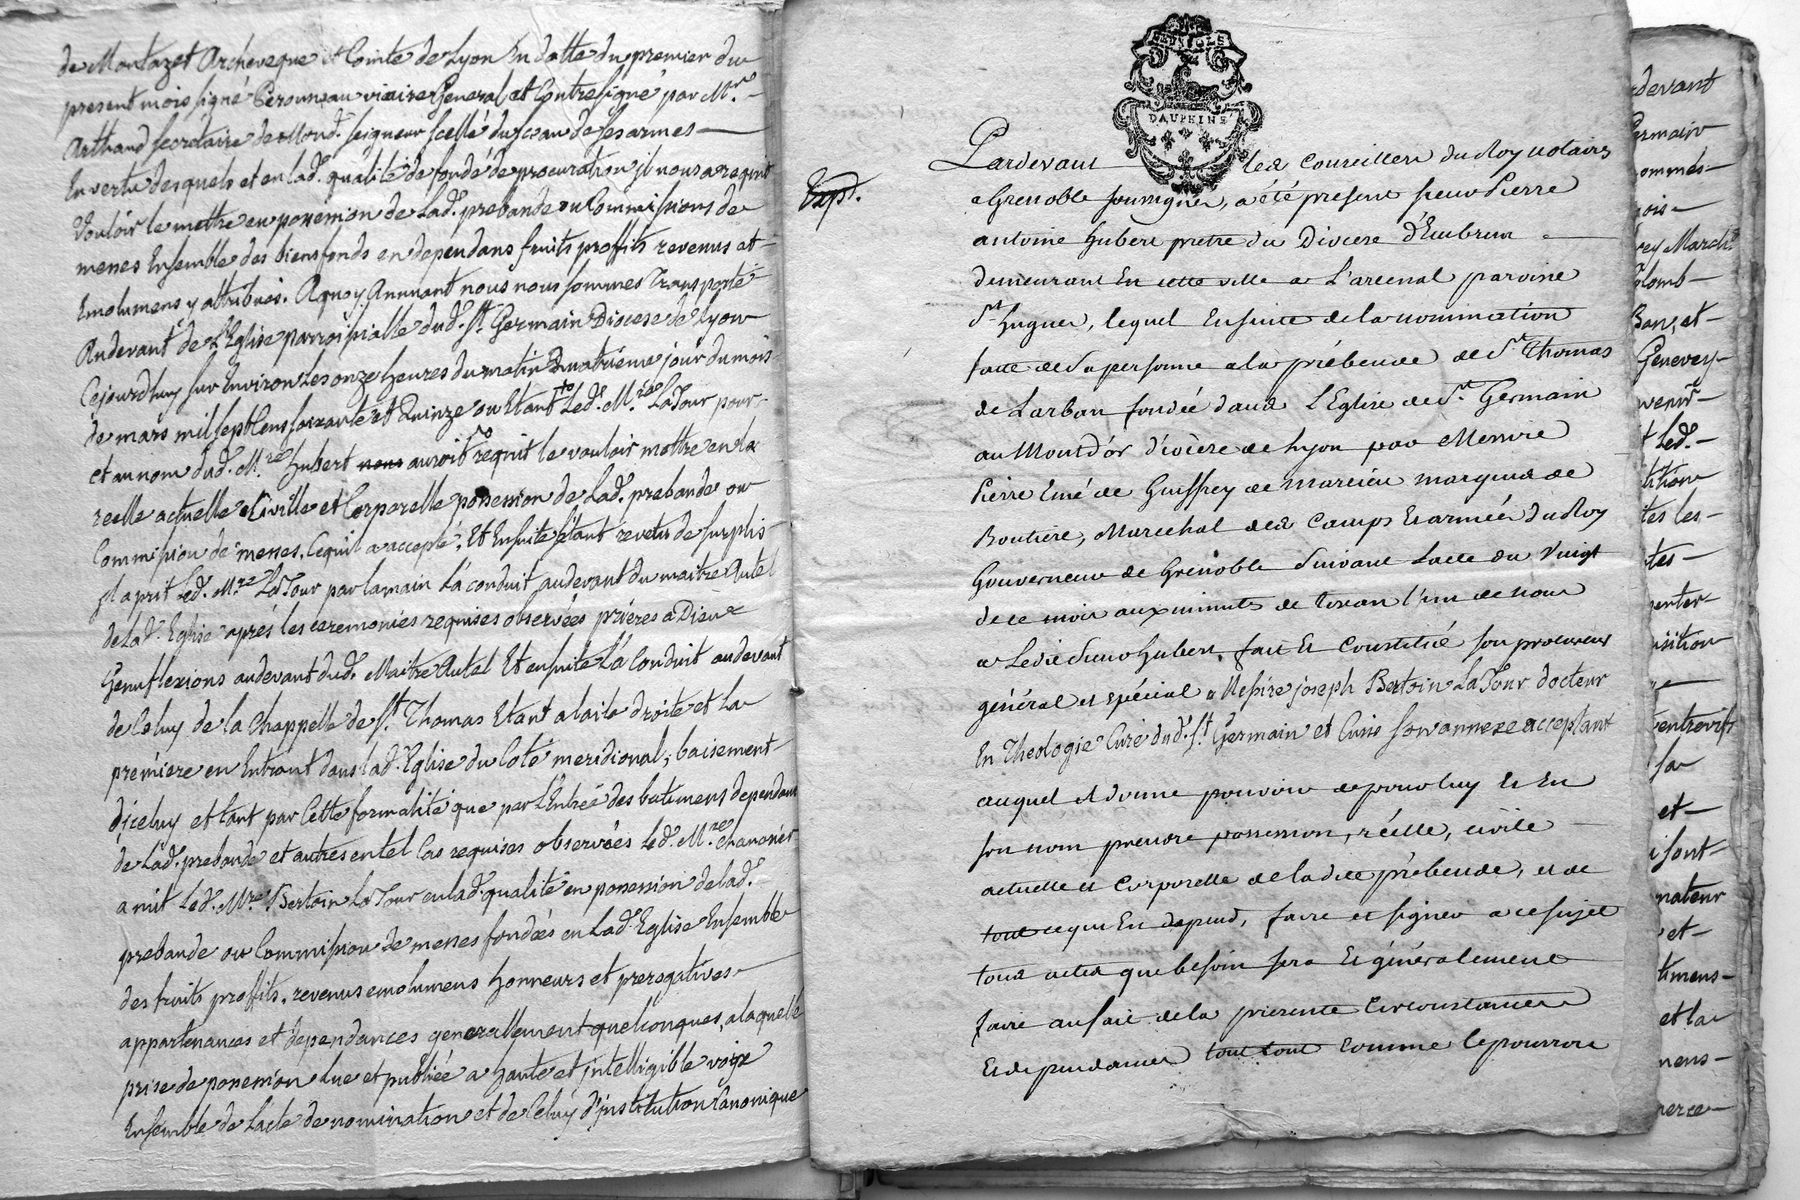 de Montazet Archeveque et Comte de Lyon En datte du premier du
present mois signé Peronneau vicaire General et Contresigné par Mr.
Arthaud secretaire de Mond. seigneur scellé du sceau de ses armes
En vertu desquels et en lad. qualité de fondé de procuration il nous a requis
vouloir le mettre en possession de Lad. prebande ou Commissions de
messes Ensemble des biens fonds en dependans fruits proffits revenus et
Emolumens y attribués. A quoy Annuant nous nous sommes Transporté
Audevant de L'Eglise parroissialle dud. St. Germain Diocese de Lyon
Cejourdhuy sur Environ Les onze heures du matin Quatrieme jour du mois
de mars mil sept Cens soixante et Quinze ou Etant Led. Mre. LaTour pour
et au nom dud. Mre. Hubert nous auroit requit le vouloir mettre en la
reelle actuelle Civille et Corporelle possession de Lad. prebande ou
Commission de messes, Ce quil a accepté. Et Ensuite s'étant revetu de surplis
Il a prit Led. Mre. LaTour par la main L'a conduit audevant du maitre Autel
de lad. Eglise apres les ceremonies requises observées prieres a Dieu
Genuflexions audevant dud. Maitre Autel Et ensuite L'a Conduit audevant
de Celuy de la Chappelle de St. Thomas Etant a l'aile droite et La
premiere en Entrant dans lad. Eglise du Coté meridional, baisement
d'iceluy et tant par Cette formalité que par L'Entrée des batimens dependans
de Lad. prebande et autres en tel Cas requises observées Led. Mre. chanoine
a mit Led. Mre. Bertoin LaTour en lad. qualité en possession de lad.
prebande ou Commission de messes fondées en Lad. Eglise Ensemble
des fruits proffits, revenus emolumens honneurs et prerogatives
appartenances et dependances generallement quelconques, a laquelle
prise de possession Lue et publiée a haute et intelligible voix
Ensemble de Lacte de nomination et de Celuy d'institution Canonique
GRENOBLE
DAUPHINÉ
Expd.
Pardevant les Conseillers du Roy notaires
a Grenoble soussignés, a été present sieur Pierre
antoine hubert pretre du Diocese d'Embrun
demeurant En cette ville a L'arcenal paroisse
St. hugues, lequel Ensuitte de la nomination
faitte de sa personne a la prébende de St. Thomas
de Larban fondée dans L'Eglise de St. Germain
au Montd'or diocèse de Lyon par Messire
Pierre Emé de Guiffrey de Marcieu marquis de
Boutiere, Marechal des Camps Et armées du Roy
Gouverneur de Grenoble Suivant Lacte du vingt
de ce mois aux minuts de Toscan l'un de nous
Ledit sieur hubert, fait Et Constitué son procureur
général et spécial Messire joseph Bertoin LaTour docteur
En Theologie Curé dud. St. Germain et Curis son annexe acceptant
auquel Il donne pouvoir de pour luy Et En
son nom prendre possession, réelle, civile
actuelle et Corporelle de la dite prébende, et de
tout ce qui En depend, faire et signer a ce sujet
tous actes que besoin sera Et généralement
faire au fait de la presente Circonstances
Et dependances tout tout comme le pourroit
rdevant
Germain
ommes
Marchd
lomb
Ban, et
Genevey
venir
t Led.
tition
tes les
tes
enter
sition
entrevis
sa
et
i font
nateur
et
timens
et la
mens